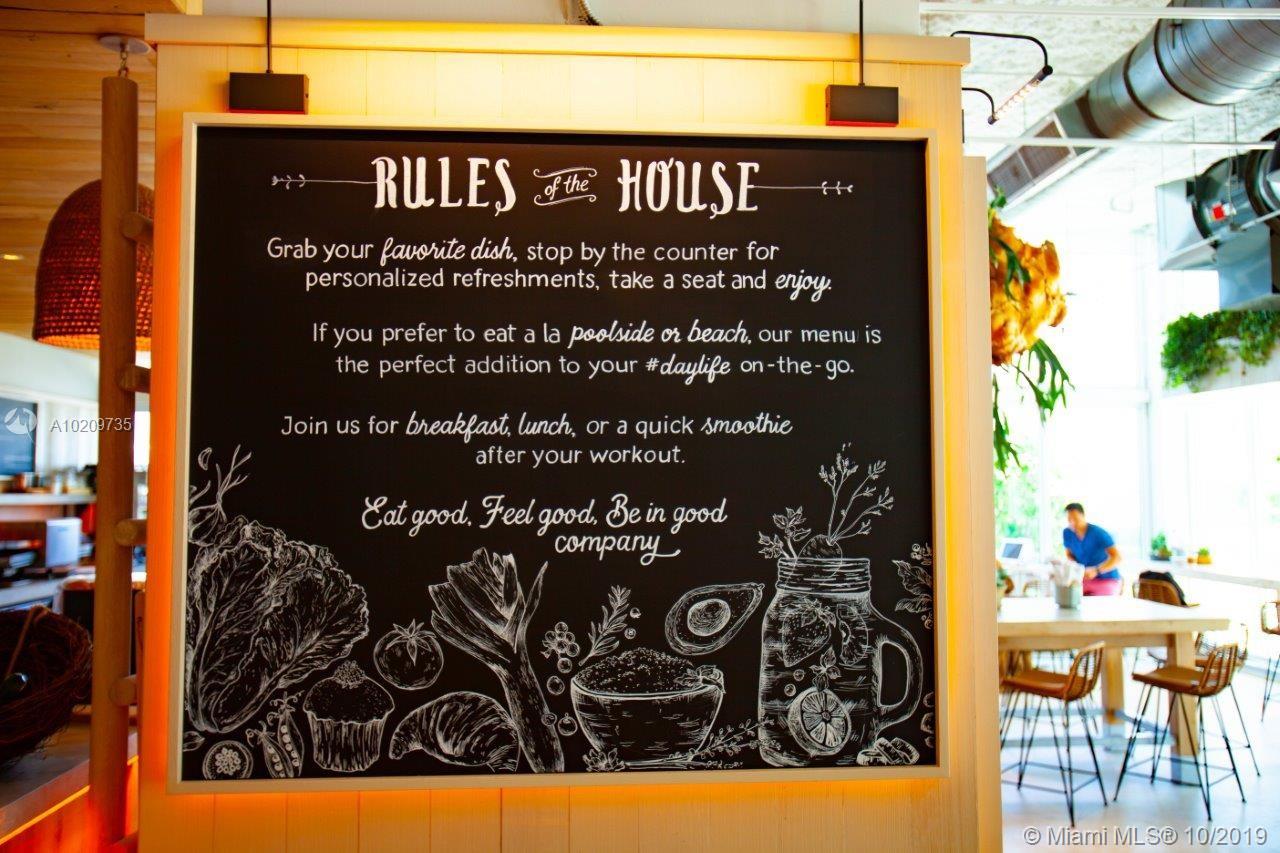 RULES of the HOUSE
Grab your favorite dish, stop by the counter for
personalized refreshments, take a seat and enjoy.
If you prefer to eat a la poolside or beach, our menu is
the perfect addition to your #daylife on-the-go.
Join us for breakfast, lunch, or a quick smoothie
after your workout.
Eat good, Feel good, Be in good
company
A10209735
© Miami MLS® 10/2019